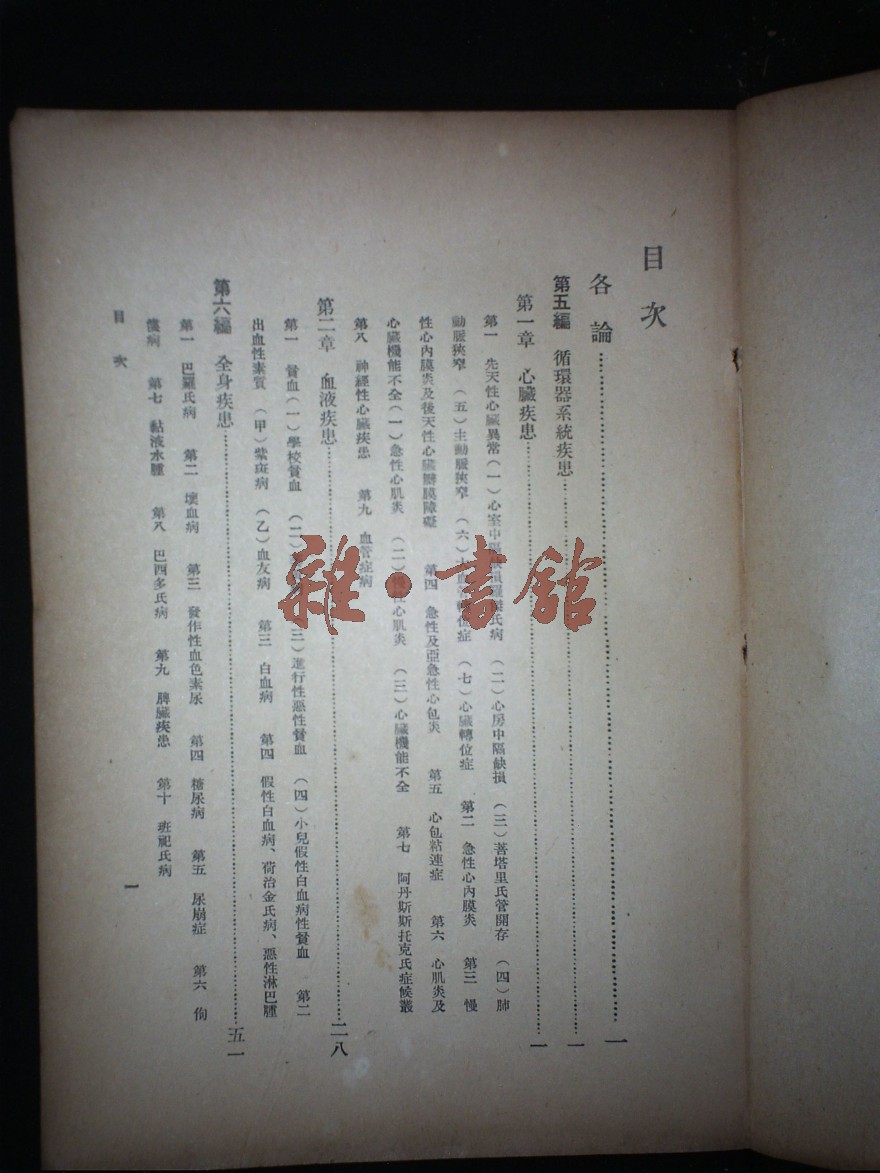 目次
各論……一
第五編 循環器系統疾患……一
第一章 心臟疾患……一
第一 先天性心臟異常(一)心室中隔缺損 氏病 (二)心房中隔缺損 (三)菩塔里氏管開存 (四)肺
動脈狹窄 (五)主動脈狹窄 (六) 轉位症 (七)心臟轉位症 第二 急性心內膜炎 第三 慢
性心內膜炎及後天性心臟瓣膜障礙 第四 急性及亞急性心包炎 第五 心包粘連症 第六 心肌炎及
心臟機能不全(一)急性心肌炎 (二)慢性心肌炎 (三)心臟機能不全 第七 阿丹斯斯托克氏症候叢
第八 神經性心臟疾患 第九 血管症病
第二章 血液疾患……二八
第一 貧血(一)學校貧血 (二) (三)進行性惡性貧血 (四)小兒假性白血病性貧血 第二
出血性素質 (甲)紫斑病 (乙)血友病 第三 白血病 第四 假性白血病、荷治金氏病、惡性淋巴腫
第六編 全身疾患……五一
第一 巴羅氏病 第二 壞血病 第三 發作性血色素尿 第四 糖尿病 第五 尿崩症 第六 佝
僂病 第七 黏液水腫 第八 巴西多氏病 第九 脾臟疾患 第十 班祀氏病
目次 一
雜·書館